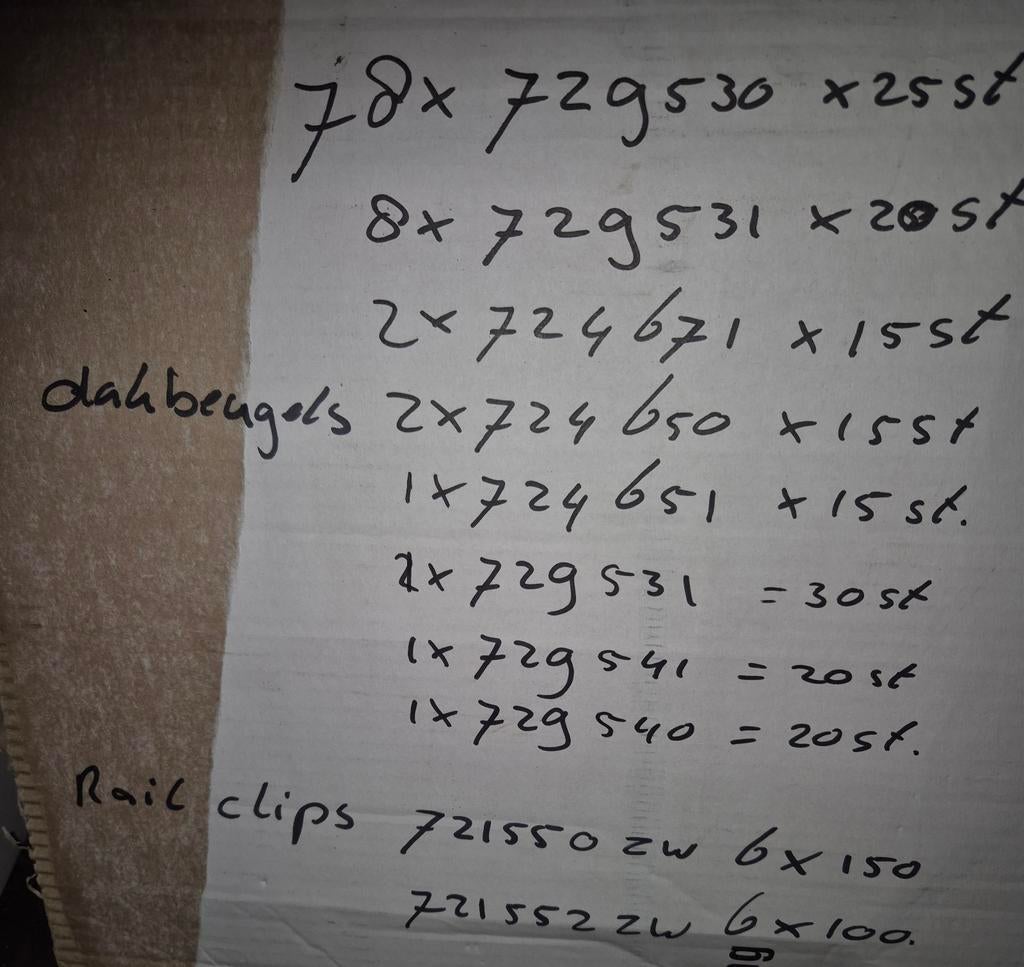 78x 729530 x25st
8x 729531 x20st
2x 724671 x15st
dakbeugels 2x724650 x15st
1x724651 x15st.
1x 729531 =30st
1x 729541 =20st
1x 729540 =20st.
Rail clips 721550 zw 6x150
721552 zw 6x100.